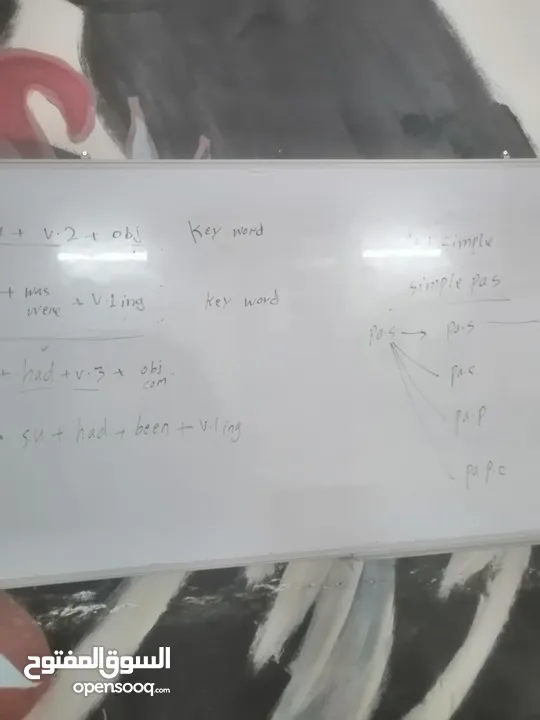 + v.2 + obj Key word
+ was + v.1 ing Key word
were
+ had + v.3 + obj
com.
su + had + been + v.1 ing
simple
simple pas
pa.s → pa.s
pa.c
pa.p
pa p.c
السوق المفتوح
opensooq.com